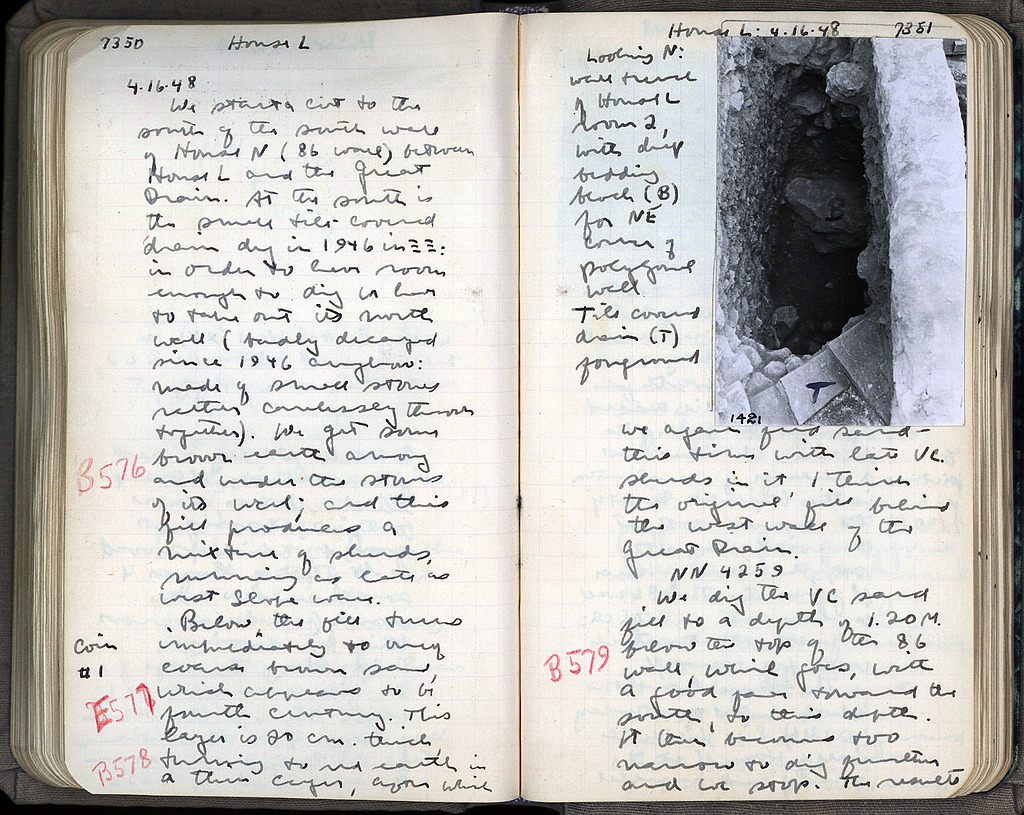 7350 House L
4.16.48
We start a cut to the
south of the south wall
of House N (86 wall) between
House L and the Great
Drain. At the south is
the small tile-covered
drain dug in 1946 in ΞΞ:
in order to have room
enough to dig we have
to take out its north
wall (badly decayed
since 1946 anyhow:
made of small stones
rather carelessly thrown
together). We get some
brown earth among
B576
and under the stones
of its wall; and this
fill produces a
mixture of sherds,
running as late as
West Slope ware.
Below the fill turns
coin
#1
immediately to very
coarse brown sand,
which appears to be
E577
fourth century. This
layer is 20 cm. thick,
B578
turning to red earth in
a thin layer, after which
House L: 4.16.48 7351
Looking N:
wall trench
of House L
room 2,
with deep
bedding
block (B)
for NE
corner of
polygonal
wall
Tile covered
drain (T)
foreground
B
T
1421
we again find sand -
this time with late VC.
sherds in it, I think
the original fill behind
the west wall of the
Great Drain.
NN 4259
We dig the VC sand
fill to a depth of 1.20 M.
B579
below the top of the 86
wall, which goes, with
a good face toward the
south, to this depth.
It then becomes too
narrow to dig further
and we stop. The results